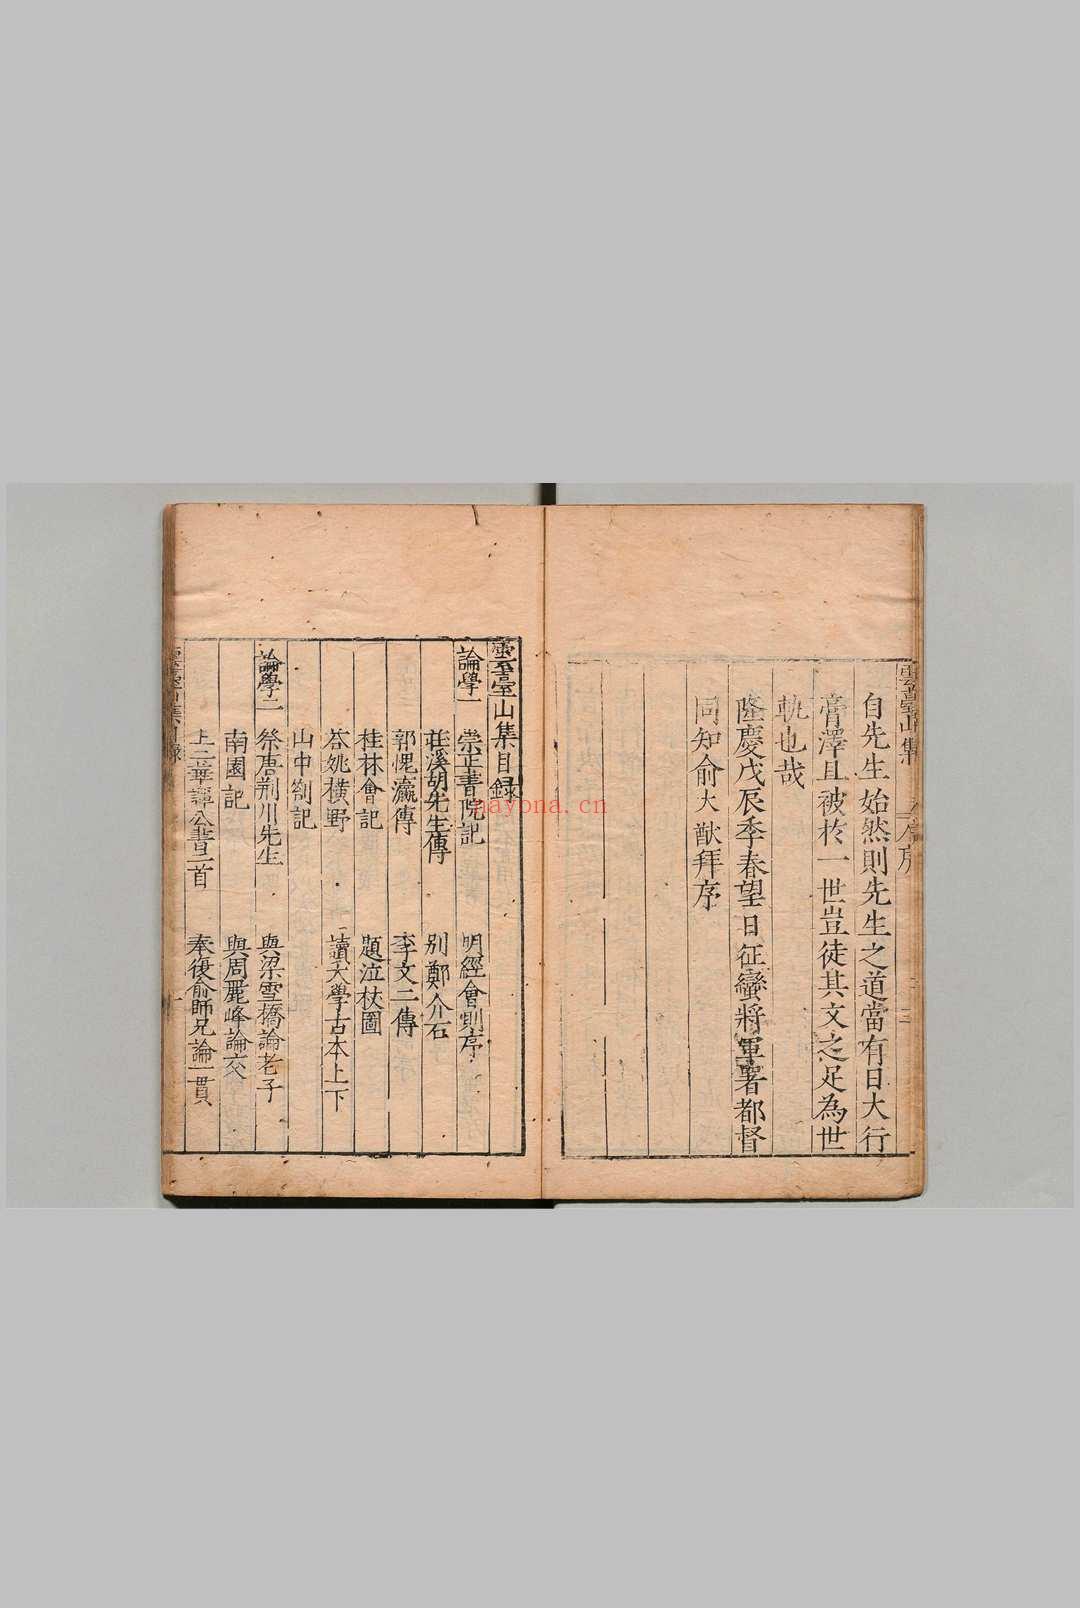 自先生始然則先生之道當有日大行
膏澤且被於一世豈徒其文之足為世
軌也哉
隆慶戊辰季春望日征蠻將軍署都督
同知俞大猷拜序
雲臺山集目録
論學一
崇正書院記 明經會則序
莊溪胡先生傳 别鄭介石
郭愧瀛傳 李文二傳
桂林會記 題泣杖圖
答姚横野 讀大學古本上下
山中劄記
論學二
祭唐荆川先生 與梁雪橋論老子
南園記 與周麗峰論交
上二華譚公書二首 奉復俞師兄論一貫
nayona.cn